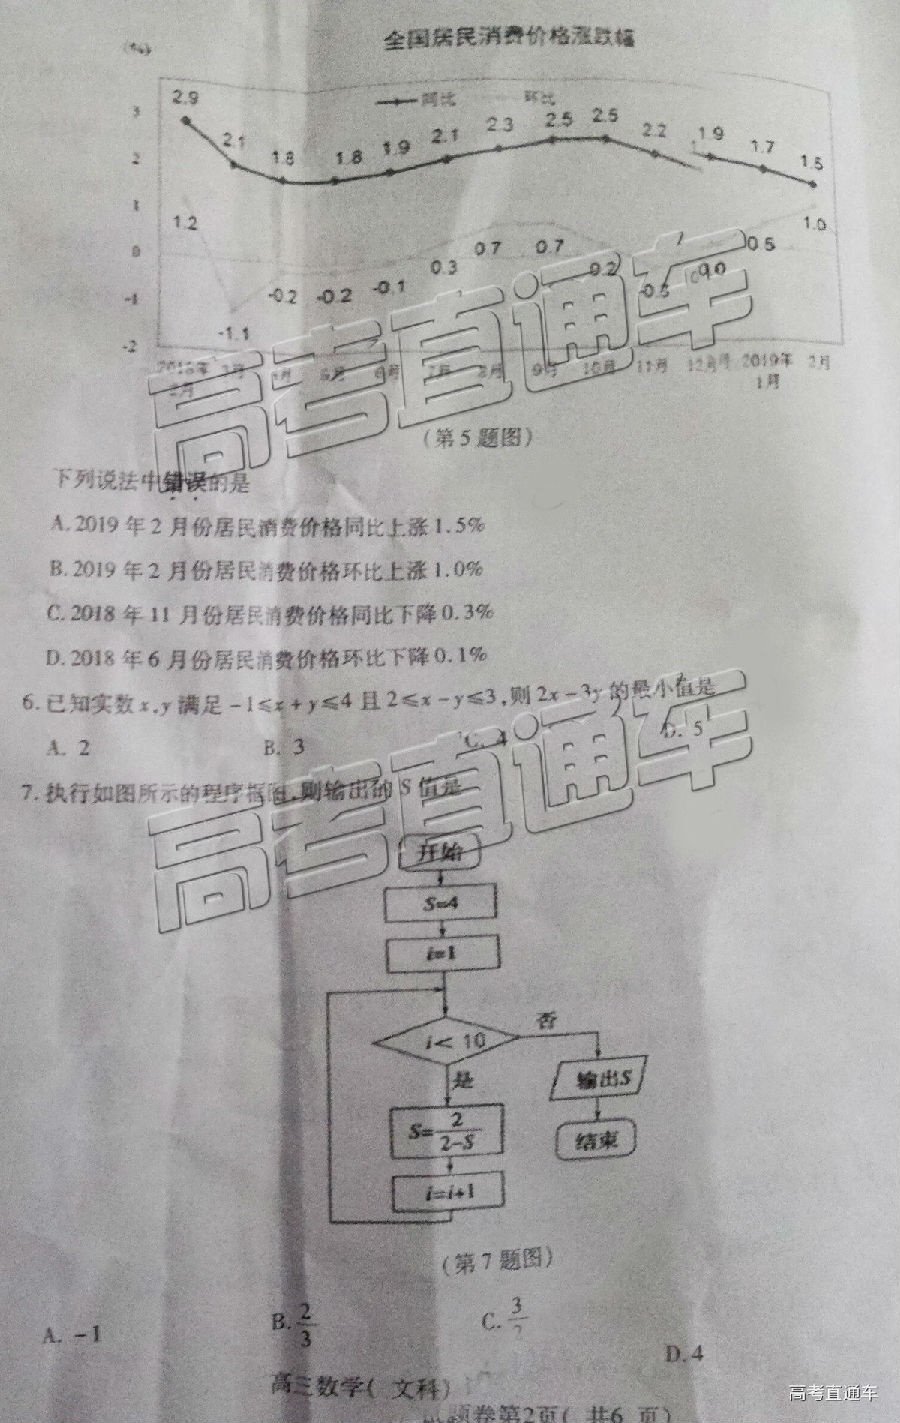 全国居民消费价格涨跌幅
(%)
同比 环比
3
2
1
0
-1
-2
2.9 2.1 1.8 1.8 1.9 2.1 2.3 2.5 2.5 2.2 1.9 1.7 1.5
1.2 -1.1 -0.2 -0.2 -0.1 0.3 0.7 0.7 0.2 0.0 0.5 1.0
2018年 3月 6月 7月 8月 9月 10月 11月 12月 2019年 2月
2月 1月
(第5题图)
下列说法中错误的是
A. 2019年2月份居民消费价格同比上涨1.5%
B. 2019年2月份居民消费价格环比上涨1.0%
C. 2018年11月份居民消费价格同比下降0.3%
D. 2018年6月份居民消费价格环比下降0.1%
6. 已知实数x,y满足-1≤x+y≤4且2≤x-y≤3,则2x-3y的最小值是
A. 2 B. 3 C. 4 D. 5
7. 执行如图所示的程序框图,则输出的S值是
开始
S=4
i=1
i< 10
否
是
输出S
S=2/(2-S)
结束
i=i+1
(第7题图)
A. -1 B. 2/3 C. 3/2 D. 4
高三数学( 文科)
试题卷第2页( 共6 页)
高考直通车
高考直通车
高考直通车